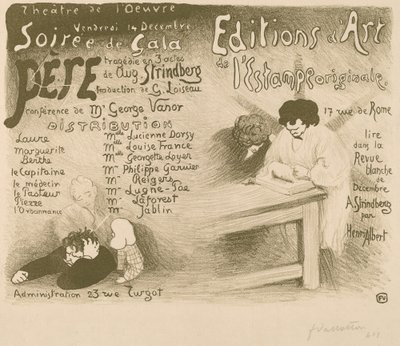 Théatre de l'Oeuvre
Vendredi 14 Décembre
Soirée de Gala
PÈRE
tragédie en 3 actes
de Aug. Strindberg
traduction de G. Loiseau
conférence de Mr George Vanor
DISTRIBUTION
Laure Mlle Lucienne Dorsy
Marguerite Mlle Louise France
Berthe Mlle Georgette Loyer
le Capitaine Mr Philippe Garnier
le médecin Mr Reigers
le Pasteur Mr Lugne-Poe
Pierre Mr Laforest
l'Ordonnance Mr Jablin
Administration 23 rue Turgot
Editions d'Art
de l'Estampe originale
17 rue de Rome
lire
dans la
Revue
blanche
de
Décembre
A. Strindberg
par
Henri Albert
FV
f Vallotton